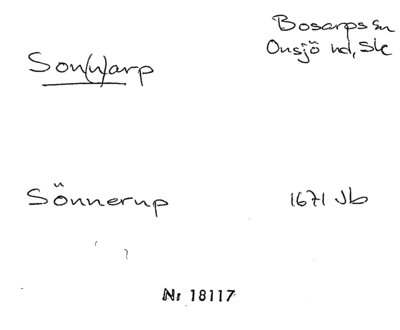 Bosarps sn
Son(n)arp
Onsjö hd, Sk
Sönnerup 1671 Jb
Nr 18117